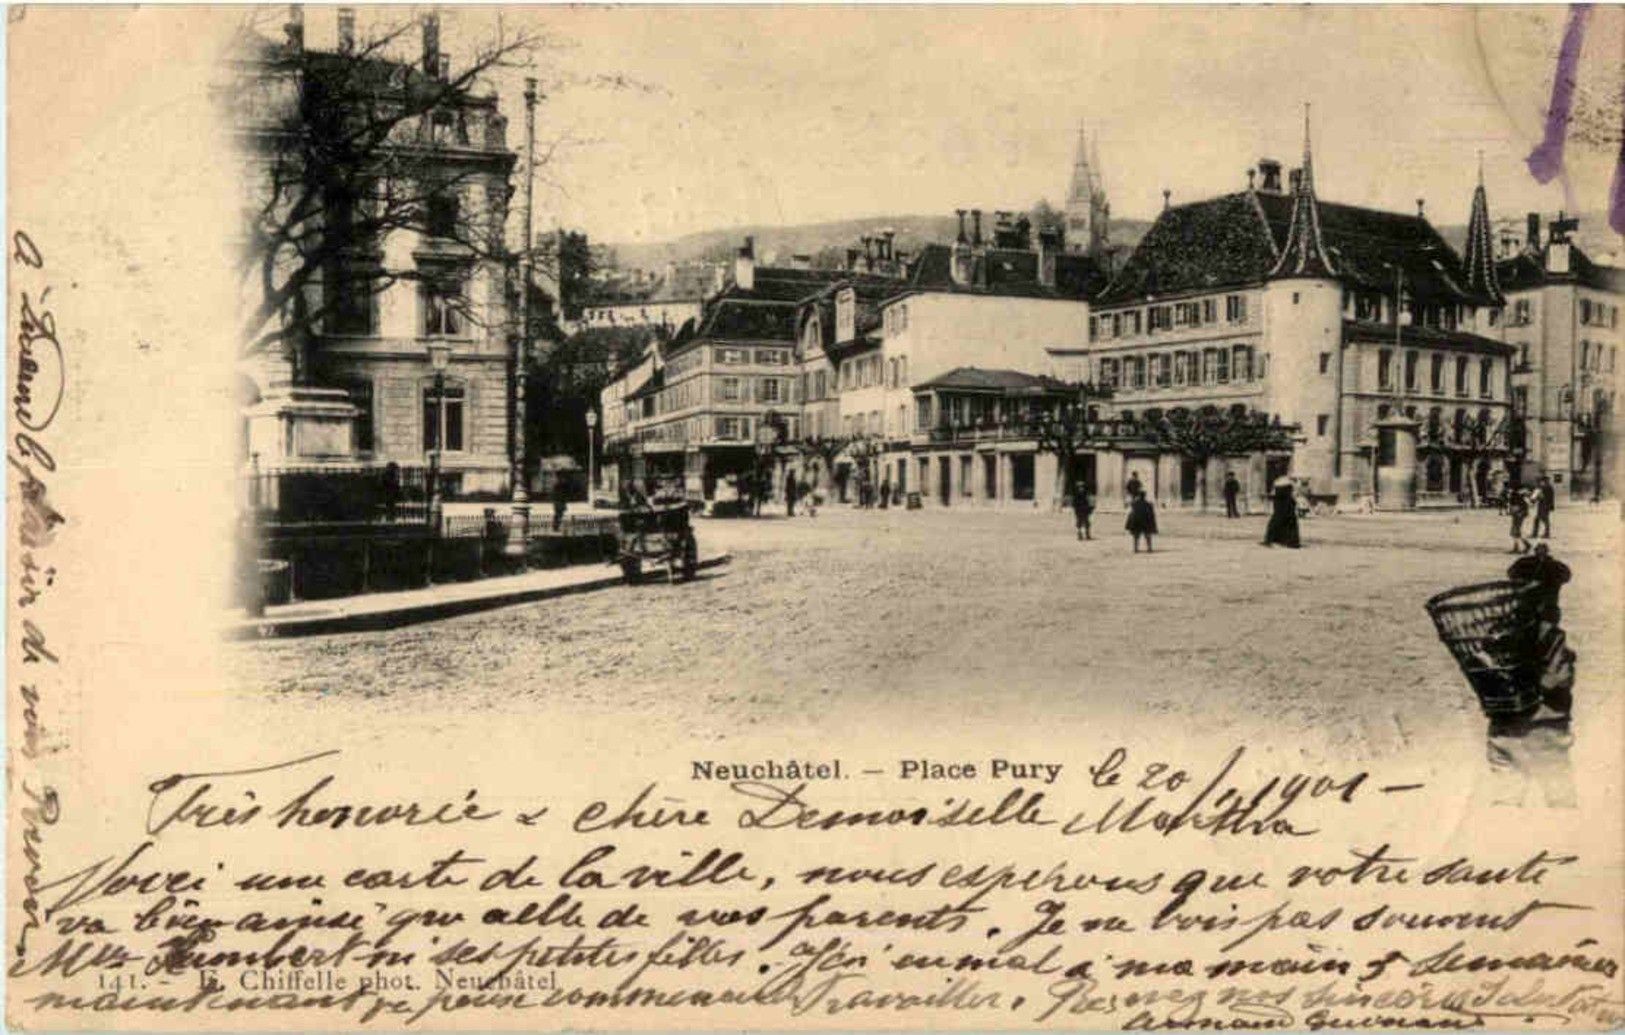 Neuchâtel. – Place Pury le 20/ 1901 –
Très honorée & chère Demoiselle Martha
Voici une carte de la ville, nous espérons que votre santé
va bien ainsi que celle de vos parents. Je ne vois pas souvent
Mlle Humbert ni ses petites filles. J'ai eu mal à ma main 5 semaines
maintenant je peux commencer travailler. Recevez nos sincères Salutations
Armand
141. – E. Chiffelle phot. Neuchâtel
à plaisir de vous Revoir